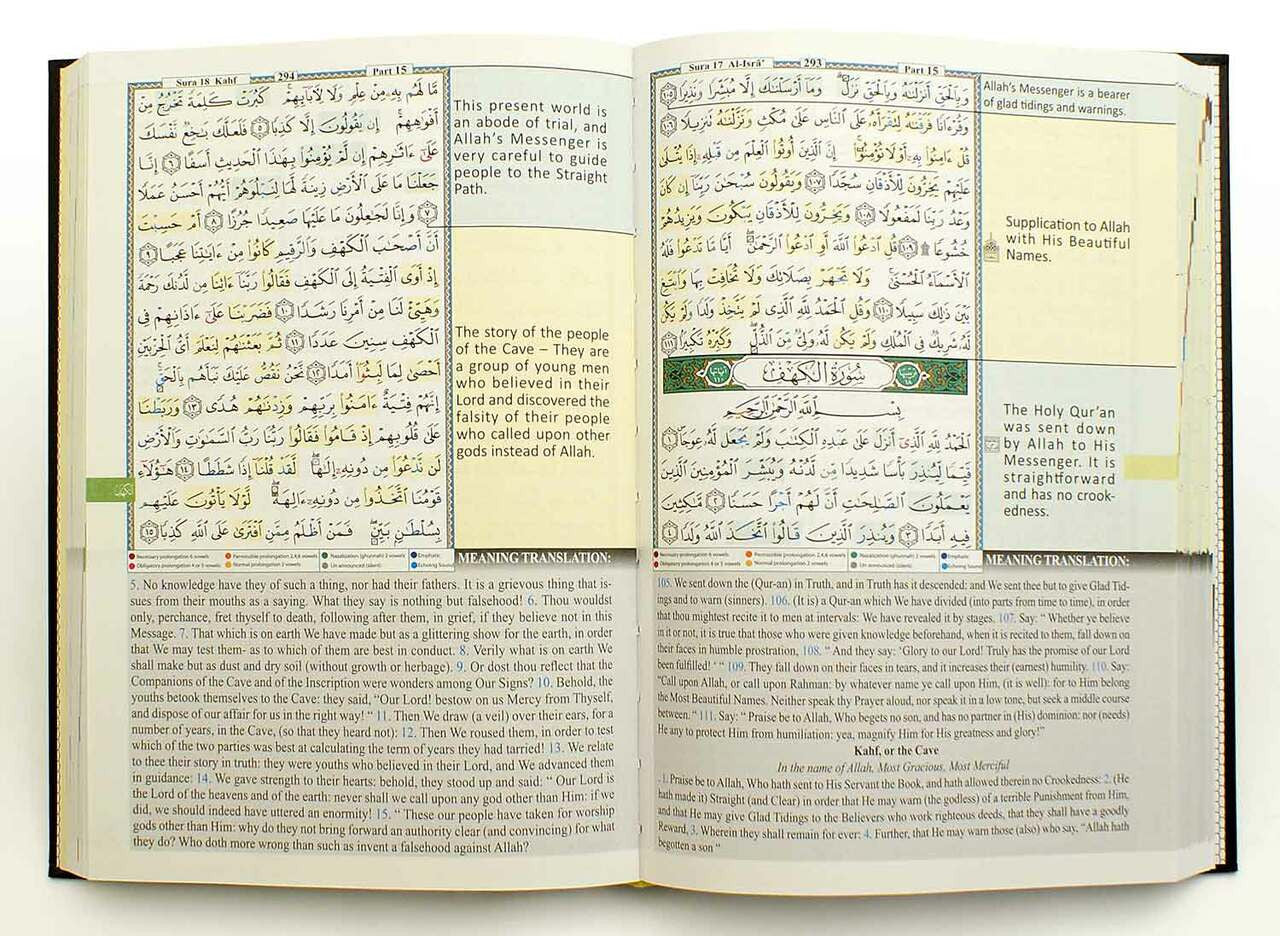 Sura 17 Al-Isrâ’
293
Part 15
وَبِالْحَقِّ أَنزَلْنَاهُ وَبِالْحَقِّ نَزَلَ ۗ وَمَا أَرْسَلْنَاكَ إِلَّا مُبَشِّرًا وَنَذِيرًا ١٠٥
وَقُرْءَانًا فَرَقْنَاهُ لِتَقْرَأَهُ عَلَى النَّاسِ عَلَىٰ مُكْثٍ وَنَزَّلْنَاهُ تَنزِيلًا ١٠٦
قُلْ ءَامِنُوا بِهِ أَوْ لَا تُؤْمِنُوا ۚ إِنَّ الَّذِينَ أُوتُوا الْعِلْمَ مِن قَبْلِهِ إِذَا يُتْلَىٰ
عَلَيْهِمْ يَخِرُّونَ لِلْأَذْقَانِ سُجَّدًا ١٠٧ وَيَقُولُونَ سُبْحَانَ رَبِّنَا إِن كَانَ
وَعْدُ رَبِّنَا لَمَفْعُولًا ١٠٨ وَيَخِرُّونَ لِلْأَذْقَانِ يَبْكُونَ وَيَزِيدُهُمْ
خُشُوعًا ۩ ١٠٩ قُلِ ادْعُوا اللَّهَ أَوِ ادْعُوا الرَّحْمَٰنَ ۖ أَيًّا مَّا تَدْعُوا فَلَهُ
الْأَسْمَاءُ الْحُسْنَىٰ ۚ وَلَا تَجْهَرْ بِصَلَاتِكَ وَلَا تُخَافِتْ بِهَا وَابْتَغِ
بَيْنَ ذَٰلِكَ سَبِيلًا ١١٠ وَقُلِ الْحَمْدُ لِلَّهِ الَّذِي لَمْ يَتَّخِذْ وَلَدًا وَلَمْ يَكُن
لَّهُ شَرِيكٌ فِي الْمُلْكِ وَلَمْ يَكُن لَّهُ وَلِيٌّ مِّنَ الذُّلِّ ۖ وَكَبِّرْهُ تَكْبِيرًا ١١١
سُورَةُ الْكَهْفِ
بِسْمِ اللَّهِ الرَّحْمَٰنِ الرَّحِيمِ
الْحَمْدُ لِلَّهِ الَّذِي أَنزَلَ عَلَىٰ عَبْدِهِ الْكِتَابَ وَلَمْ يَجْعَل لَّهُ عِوَجًا ١
قَيِّمًا لِّيُنذِرَ بَأْسًا شَدِيدًا مِّن لَّدُنْهُ وَيُبَشِّرَ الْمُؤْمِنِينَ الَّذِينَ
يَعْمَلُونَ الصَّالِحَاتِ أَنَّ لَهُمْ أَجْرًا حَسَنًا ٢ مَّاكِثِينَ
فِيهِ أَبَدًا ٣ وَيُنذِرَ الَّذِينَ قَالُوا اتَّخَذَ اللَّهُ وَلَدًا ٤
Allah’s Messenger is a bearer
of glad tidings and warnings.
Supplication to Allah
with His Beautiful
Names.
The Holy Qur’an
was sent down
by Allah to His
Messenger. It is
straightforward
and has no crook-
edness.
Necessary prolongation 6 vowels Permissible prolongation 2,4,6 vowels Nasalization (ghunnah) 2 vowels Emphatic
Obligatory prolongation 4 or 5 vowels Normal prolongation 2 vowels Un announced (silent) Echoing Sound
MEANING TRANSLATION:
105. We sent down the (Qur-an) in Truth, and in Truth has it descended: and We sent thee but to give Glad Tid-
ings and to warn (sinners). 106. (It is) a Qur-an which We have divided (into parts from time to time), in order
that thou mightest recite it to men at intervals: We have revealed it by stages. 107. Say: “ Whether ye believe
in it or not, it is true that those who were given knowledge beforehand, when it is recited to them, fall down on
their faces in humble prostration, 108. “ And they say: ‘Glory to our Lord! Truly has the promise of our Lord
been fulfilled! ‘ “ 109. They fall down on their faces in tears, and it increases their (earnest) humility. 110. Say:
“Call upon Allah, or call upon Rahman: by whatever name ye call upon Him, (it is well): for to Him belong
the Most Beautiful Names. Neither speak thy Prayer aloud, nor speak it in a low tone, but seek a middle course
between. “ 111. Say: “ Praise be to Allah, Who begets no son, and has no partner in (His) dominion: nor (needs)
He any to protect Him from humiliation: yea, magnify Him for His greatness and glory!”
Kahf, or the Cave
In the name of Allah, Most Gracious, Most Merciful
1. Praise be to Allah, Who hath sent to His Servant the Book, and hath allowed therein no Crookedness: 2. (He
hath made it) Straight (and Clear) in order that He may warn (the godless) of a terrible Punishment from Him,
and that He may give Glad Tidings to the Believers who work righteous deeds, that they shall have a goodly
Reward, 3. Wherein they shall remain for ever: 4. Further, that He may warn those (also) who say, “Allah hath
begotten a son “
Sura 18 Kahf
294
Part 15
مَّا لَهُم بِهِ مِنْ عِلْمٍ وَلَا لِآبَائِهِمْ ۚ كَبُرَتْ كَلِمَةً تَخْرُجُ مِنْ
أَفْوَاهِهِمْ ۚ إِن يَقُولُونَ إِلَّا كَذِبًا ٥ فَلَعَلَّكَ بَاخِعٌ نَّفْسَكَ
عَلَىٰ ءَاثَارِهِمْ إِن لَّمْ يُؤْمِنُوا بِهَٰذَا الْحَدِيثِ أَسَفًا ٦ إِنَّا
جَعَلْنَا مَا عَلَى الْأَرْضِ زِينَةً لَّهَا لِنَبْلُوَهُمْ أَيُّهُمْ أَحْسَنُ عَمَلًا
٧ وَإِنَّا لَجَاعِلُونَ مَا عَلَيْهَا صَعِيدًا جُرُزًا ٨ أَمْ حَسِبْتَ
أَنَّ أَصْحَابَ الْكَهْفِ وَالرَّقِيمِ كَانُوا مِنْ ءَايَاتِنَا عَجَبًا ٩
إِذْ أَوَى الْفِتْيَةُ إِلَى الْكَهْفِ فَقَالُوا رَبَّنَا ءَاتِنَا مِن لَّدُنكَ رَحْمَةً
وَهَيِّئْ لَنَا مِنْ أَمْرِنَا رَشَدًا ١٠ فَضَرَبْنَا عَلَىٰ ءَاذَانِهِمْ فِي
الْكَهْفِ سِنِينَ عَدَدًا ١١ ثُمَّ بَعَثْنَاهُمْ لِنَعْلَمَ أَيُّ الْحِزْبَيْنِ
أَحْصَىٰ لِمَا لَبِثُوا أَمَدًا ١٢ نَّحْنُ نَقُصُّ عَلَيْكَ نَبَأَهُم بِالْحَقِّ ۚ
إِنَّهُمْ فِتْيَةٌ ءَامَنُوا بِرَبِّهِمْ وَزِدْنَاهُمْ هُدًى ١٣ وَرَبَطْنَا
عَلَىٰ قُلُوبِهِمْ إِذْ قَامُوا فَقَالُوا رَبُّنَا رَبُّ السَّمَاوَاتِ وَالْأَرْضِ
لَن نَّدْعُوَا مِن دُونِهِ إِلَٰهًا ۖ لَّقَدْ قُلْنَا إِذًا شَطَطًا ١٤ هَٰؤُلَاءِ
قَوْمُنَا اتَّخَذُوا مِن دُونِهِ ءَالِهَةً ۖ لَّوْلَا يَأْتُونَ عَلَيْهِم
بِسُلْطَانٍ بَيِّنٍ ۖ فَمَنْ أَظْلَمُ مِمَّنِ افْتَرَىٰ عَلَى اللَّهِ كَذِبًا ١٥
الكهف
This present world is
an abode of trial, and
Allah’s Messenger is
very careful to guide
people to the Straight
Path.
The story of the people
of the Cave – They are
a group of young men
who believed in their
Lord and discovered the
falsity of their people
who called upon other
gods instead of Allah.
Necessary prolongation 6 vowels Permissible prolongation 2,4,6 vowels Nasalization (ghunnah) 2 vowels Emphatic
Obligatory prolongation 4 or 5 vowels Normal prolongation 2 vowels Un announced (silent) Echoing Sound
MEANING TRANSLATION:
5. No knowledge have they of such a thing, nor had their fathers. It is a grievous thing that is-
sues from their mouths as a saying. What they say is nothing but falsehood! 6. Thou wouldst
only, perchance, fret thyself to death, following after them, in grief, if they believe not in this
Message. 7. That which is on earth We have made but as a glittering show for the earth, in order
that We may test them- as to which of them are best in conduct. 8. Verily what is on earth We
shall make but as dust and dry soil (without growth or herbage). 9. Or dost thou reflect that the
Companions of the Cave and of the Inscription were wonders among Our Signs? 10. Behold, the
youths betook themselves to the Cave: they said, “Our Lord! bestow on us Mercy from Thyself,
and dispose of our affair for us in the right way! “ 11. Then We draw (a veil) over their ears, for a
number of years, in the Cave, (so that they heard not): 12. Then We roused them, in order to test
which of the two parties was best at calculating the term of years they had tarried! 13. We relate
to thee their story in truth: they were youths who believed in their Lord, and We advanced them
in guidance: 14. We gave strength to their hearts: behold, they stood up and said: “ Our Lord is
the Lord of the heavens and of the earth: never shall we call upon any god other than Him: if we
did, we should indeed have uttered an enormity! 15. “ These our people have taken for worship
gods other than Him: why do they not bring forward an authority clear (and convincing) for what
they do? Who doth more wrong than such as invent a falsehood against Allah?